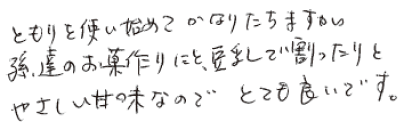 ともりを使い始めてかなりたちますがい
孫達のお菓作りにと、豆乳しで割ったりと
やさしい甘味なので とても良いです。